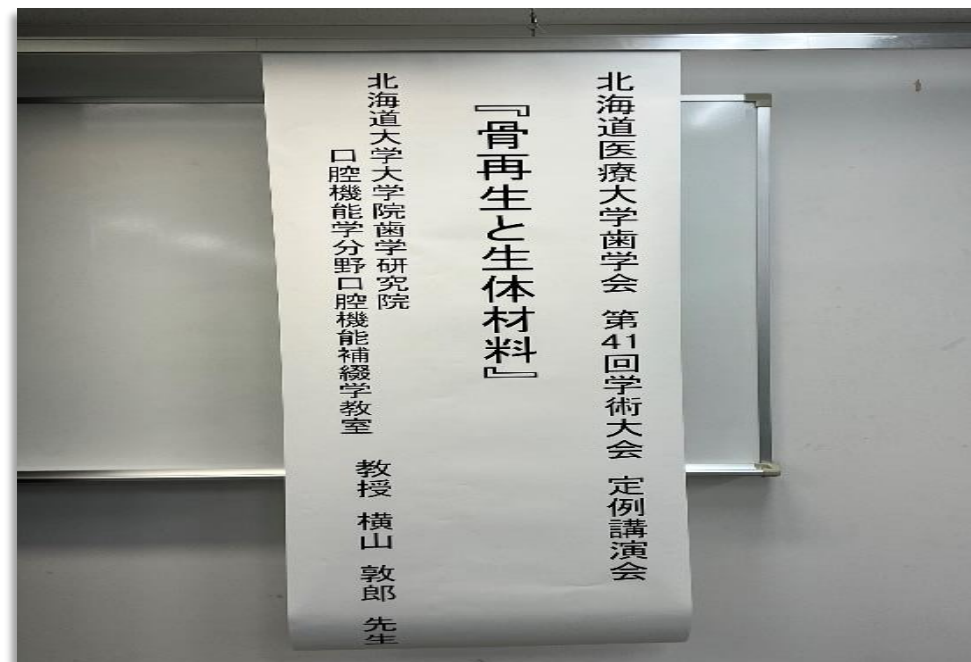 北海道医療大学歯学会 第41回学術大会 定例講演会
『骨再生と生体材料』
北海道大学大学院歯学研究院
口腔機能学分野口腔機能補綴学教室 教授 横山 敦郎 先生